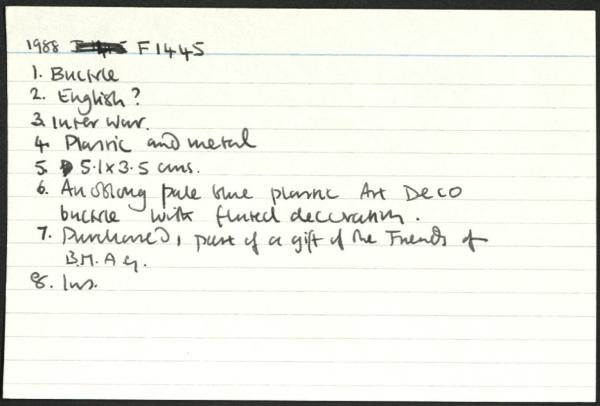 1988 F1445
1. Buckle
2. English?
3. Inter War.
4. Plastic and metal
5. 5.1 x 3.5 cms.
6. An oblong pale blue plastic Art Deco
buckle with fluted decoration.
7. Purchased, part of a gift of the Friends of
B.M.A.G.
8. Ins.